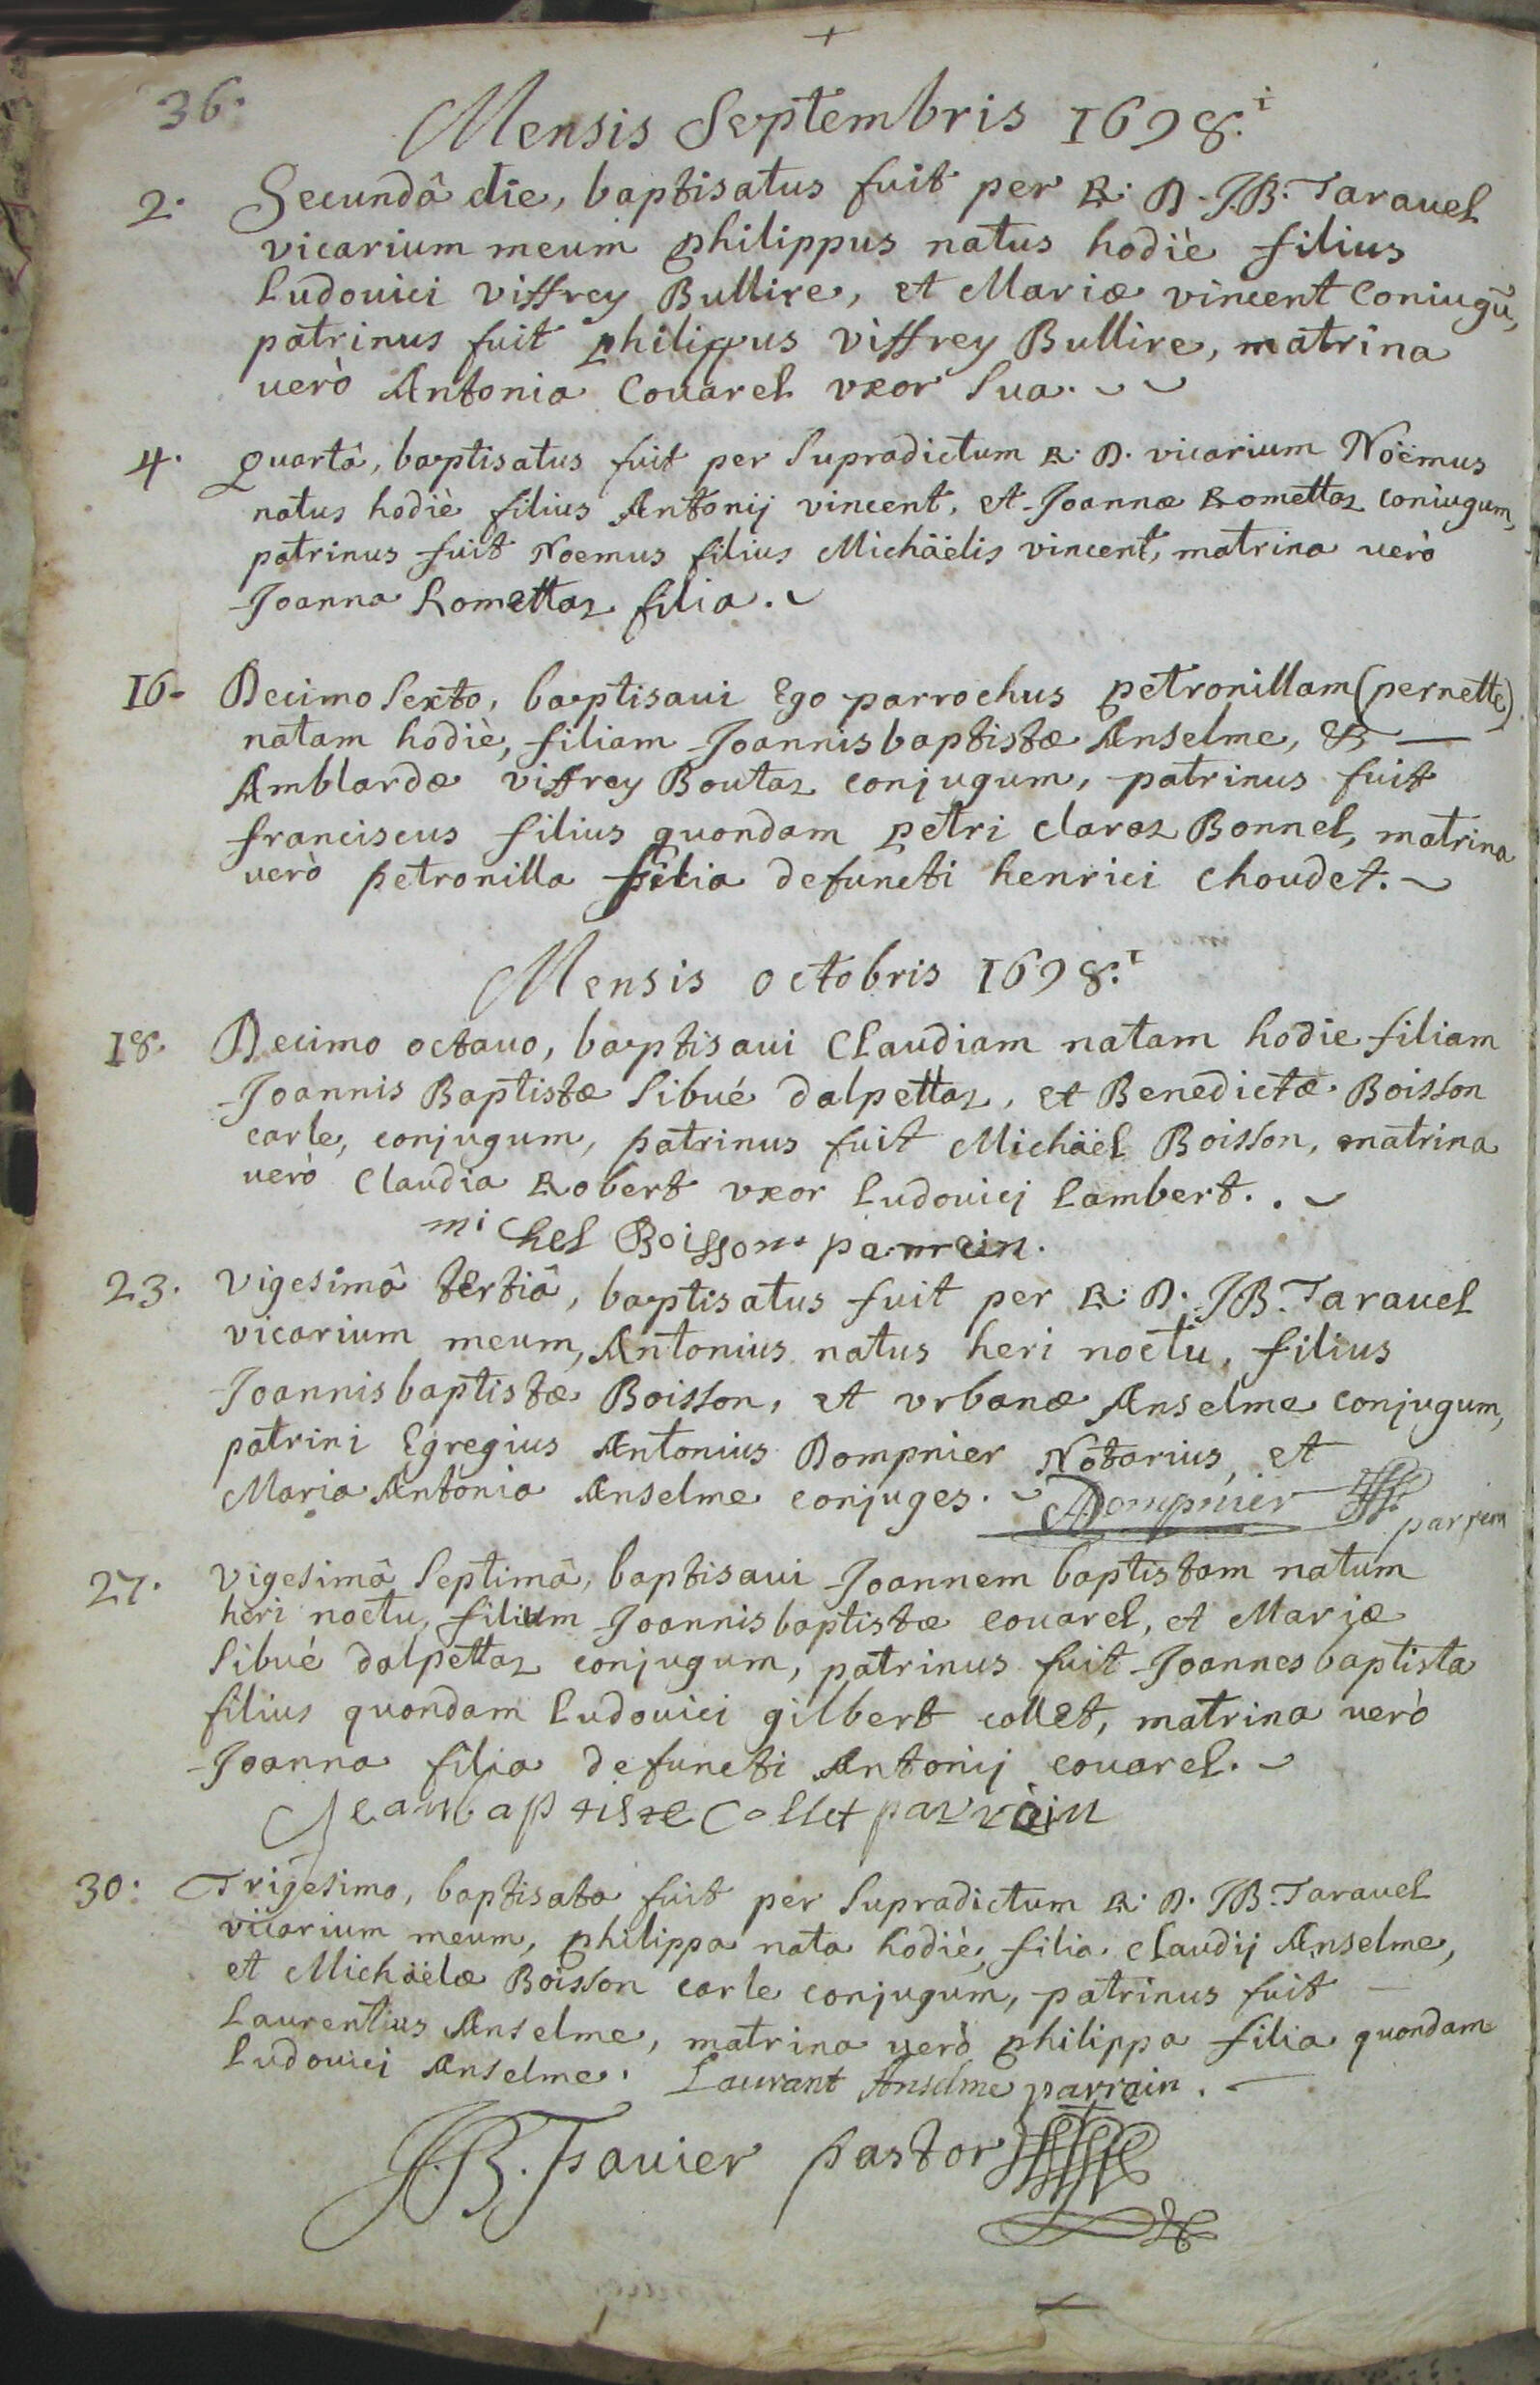 36.
Mensis Septembris 1698.i
2. Secundâ die, baptisatus fuit per R. D. J.B. Tarauel
vicarium meum philippus natus hodiè filius
Ludouici viffrey Bullire, et Mariæ vincent Coniugũ,
patrinus fuit philippus viffrey Bullire, matrina
uerò Antonia Couarel vxor sua.
4. quartâ, baptisatus fuit per supradictum R. D. vicarium Nöemus
natus hodiè filius Antonij vincent, et Joannæ Romettaz coniugum,
patrinus fuit Noemus filius Michäelis vincent, matrina uerò
Joanna Romettaz filia.
16. Decimo sexto, baptisaui Ego parrochus petronillam (pernette)
natam hodiè, filiam Joannisbaptistæ Anselme, &
Amblardæ viffrey Boutaz conjugum, patrinus fuit
franciscus filius quondam petri claraz Bonnel, matrina
uerò petronilla filia defuncti henrici choudet.
Mensis octobris 1698.i
18. Decimo octauo, baptisaui Claudiam natam hodie filiam
Joannis Baptistæ Sibué dalpettaz, et Benedictæ Boisson
carle, conjugum, patrinus fuit Michäel Boisson, matrina
uerò Claudia Robert vxor Ludouicj Lambert.
michel Boisson parrein.
23. vigesimâ tertiâ, baptisatus fuit per R. D. JB. Tarauel
vicarium meum, Antonius natus heri noctu, filius
Joannisbaptistæ Boisson, et vrbanæ Anselme conjugum,
patrini Egregius Antonius Dompnier Notarius, et
Maria Antonia Anselme conjuges. ADompnier
parrein
27. vigesimâ septimâ, baptisaui Joannem baptistam natum
heri noctu, filium Joannisbaptistæ couarel, et Mariæ
Sibué dalpettaz conjugum, patrinus fuit Joannesbaptista
filius quondam Ludouici gilbert collet, matrina uerò
Joanna filia defuncti Antonij couarel.
Jeanbaptiste Collet parrein
30. Trigesimo, baptisata fuit per supradictum R. D. JB. Tarauel
vicarium meum, philippa nata hodiè, filia Claudij Anselme,
et Michäelæ Boisson carle conjugum, patrinus fuit
Laurentius Anselme, matrina uerò philippa filia quondam
Ludouici Anselme. Laurant Anselme parrain.
J.B. Favier pastor